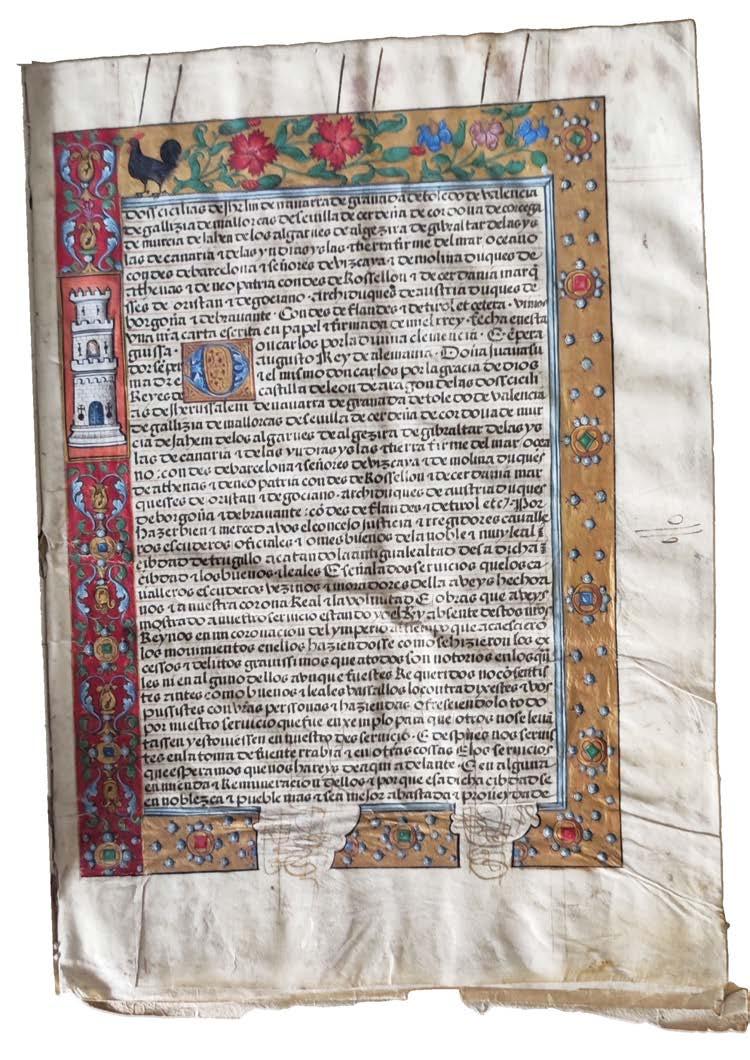 Dos secilias de Jhrlm de navarra de granada de toledo de valencia
de gallizia de mallorcas de sevilla de cerdeña de cordova de corcega
de murcia de Jahen de los algarves de algezira de gibraltar de las ys
las de canaria ⁊ de las yndias yslas ⁊ tierra firme del mar oceano
condes de barcelona ⁊ señores de vizcaya ⁊ de molina duques de
athenas ⁊ de neopatria condes de Rossellon ⁊ de cerdania marq̃
ses de oristan ⁊ de gociano · archiduques de austria duques de
borgoña ⁊ de bravante · Condes de flandes ⁊ de tirol et cetera · vimos
vna nr̃a carta escrita en papel ⁊ firmada de mi el rey · fecha en esta
guissa · Don carlos por la divina clemencia · E enpera
dor senpre augusto Rey de alemania · Doña Juana su
madre ⁊ el mismo don carlos por la gracia de dios
Reyes de castilla de leon de aragon de las dos secili
as de Jherussalem de navarra de granada de toledo de valencia
de gallizia de mallorcas de sevilla de cerdeña de cordova de mur
cia de Jahem de los algarves de algezira de gibraltar de las ys
las de canaria ⁊ de las yndias yslas ⁊ tierra firme del mar ocea
no : condes de barcelona ⁊ señores de vizcaya ⁊ de molina duques
de athenas ⁊ de neopatria condes de Rossellon ⁊ de cerdania mar
quesses de oristan ⁊ de gociano · archiduques de austria duques
de borgoña ⁊ de bravante : cõdes de flandes ⁊ de tirol etc̃ · Por
hazer bien ⁊ merced a vos el concejo justicia ⁊ rregidores cavalle
ros escuderos oficiales ⁊ omes buenos de la noble ⁊ muy leal
cibdad de trugillo acatando la antigua lealtad de esa dicha
cibdad ⁊ los buenos ⁊ leales E señalados servicios que los ca
valleros escuderos vezinos ⁊ moradores della aveys hecho a
nos ⁊ a nuestra corona Real ⁊ la volũtad E obras que aveys
mostrado a nuestro servicio estando yo el Rey absente destos nr̃os
Reynos en mi coronacion del ymperio al tiempo que acaescierõ
los movimientos en ellos haziendosse como se hizieron los ex
cessos ⁊ delitos gravissimos que a todos son notorios en los q̃
les ni en alguno dellos avnque fuestes Requeridos no cõsentis
tes antes como buenos ⁊ leales vassallos lo contradixestes ⁊ vos
pussistes con vr̃as perssonas ⁊ haziendas Ofresciendolo todo
por nuestro servicio que fue enxemplo para que otros no se levã
tassen y estoviessen en nuestro desservicio · E despues nos servis
tes en la toma de fuenterrabia ⁊ en otras cossas E los servicios
que esperamos que nos hareys de aqui adelante · E en alguna
enmienda ⁊ Remuneracion dellos ⁊ porque esa dicha cibdad se
en noblezca ⁊ pueble mas ⁊ sea mejor abastada ⁊ proveyda de